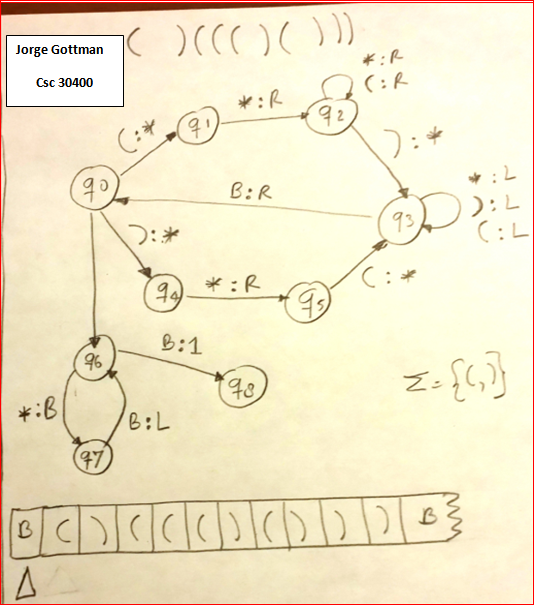 Jorge Gottman
Csc 30400
( )((()()))
*:R
(:R
(:*
q1
*:R
q2
):*
q0
B:R
q3
*:L
):L
(:L
):*
q4
*:R
q5
(:*
q6
B:1
q8
Σ={(,)}
*:B
B:L
q7
B ( ) ( ( ( ) ( ) ) ) B